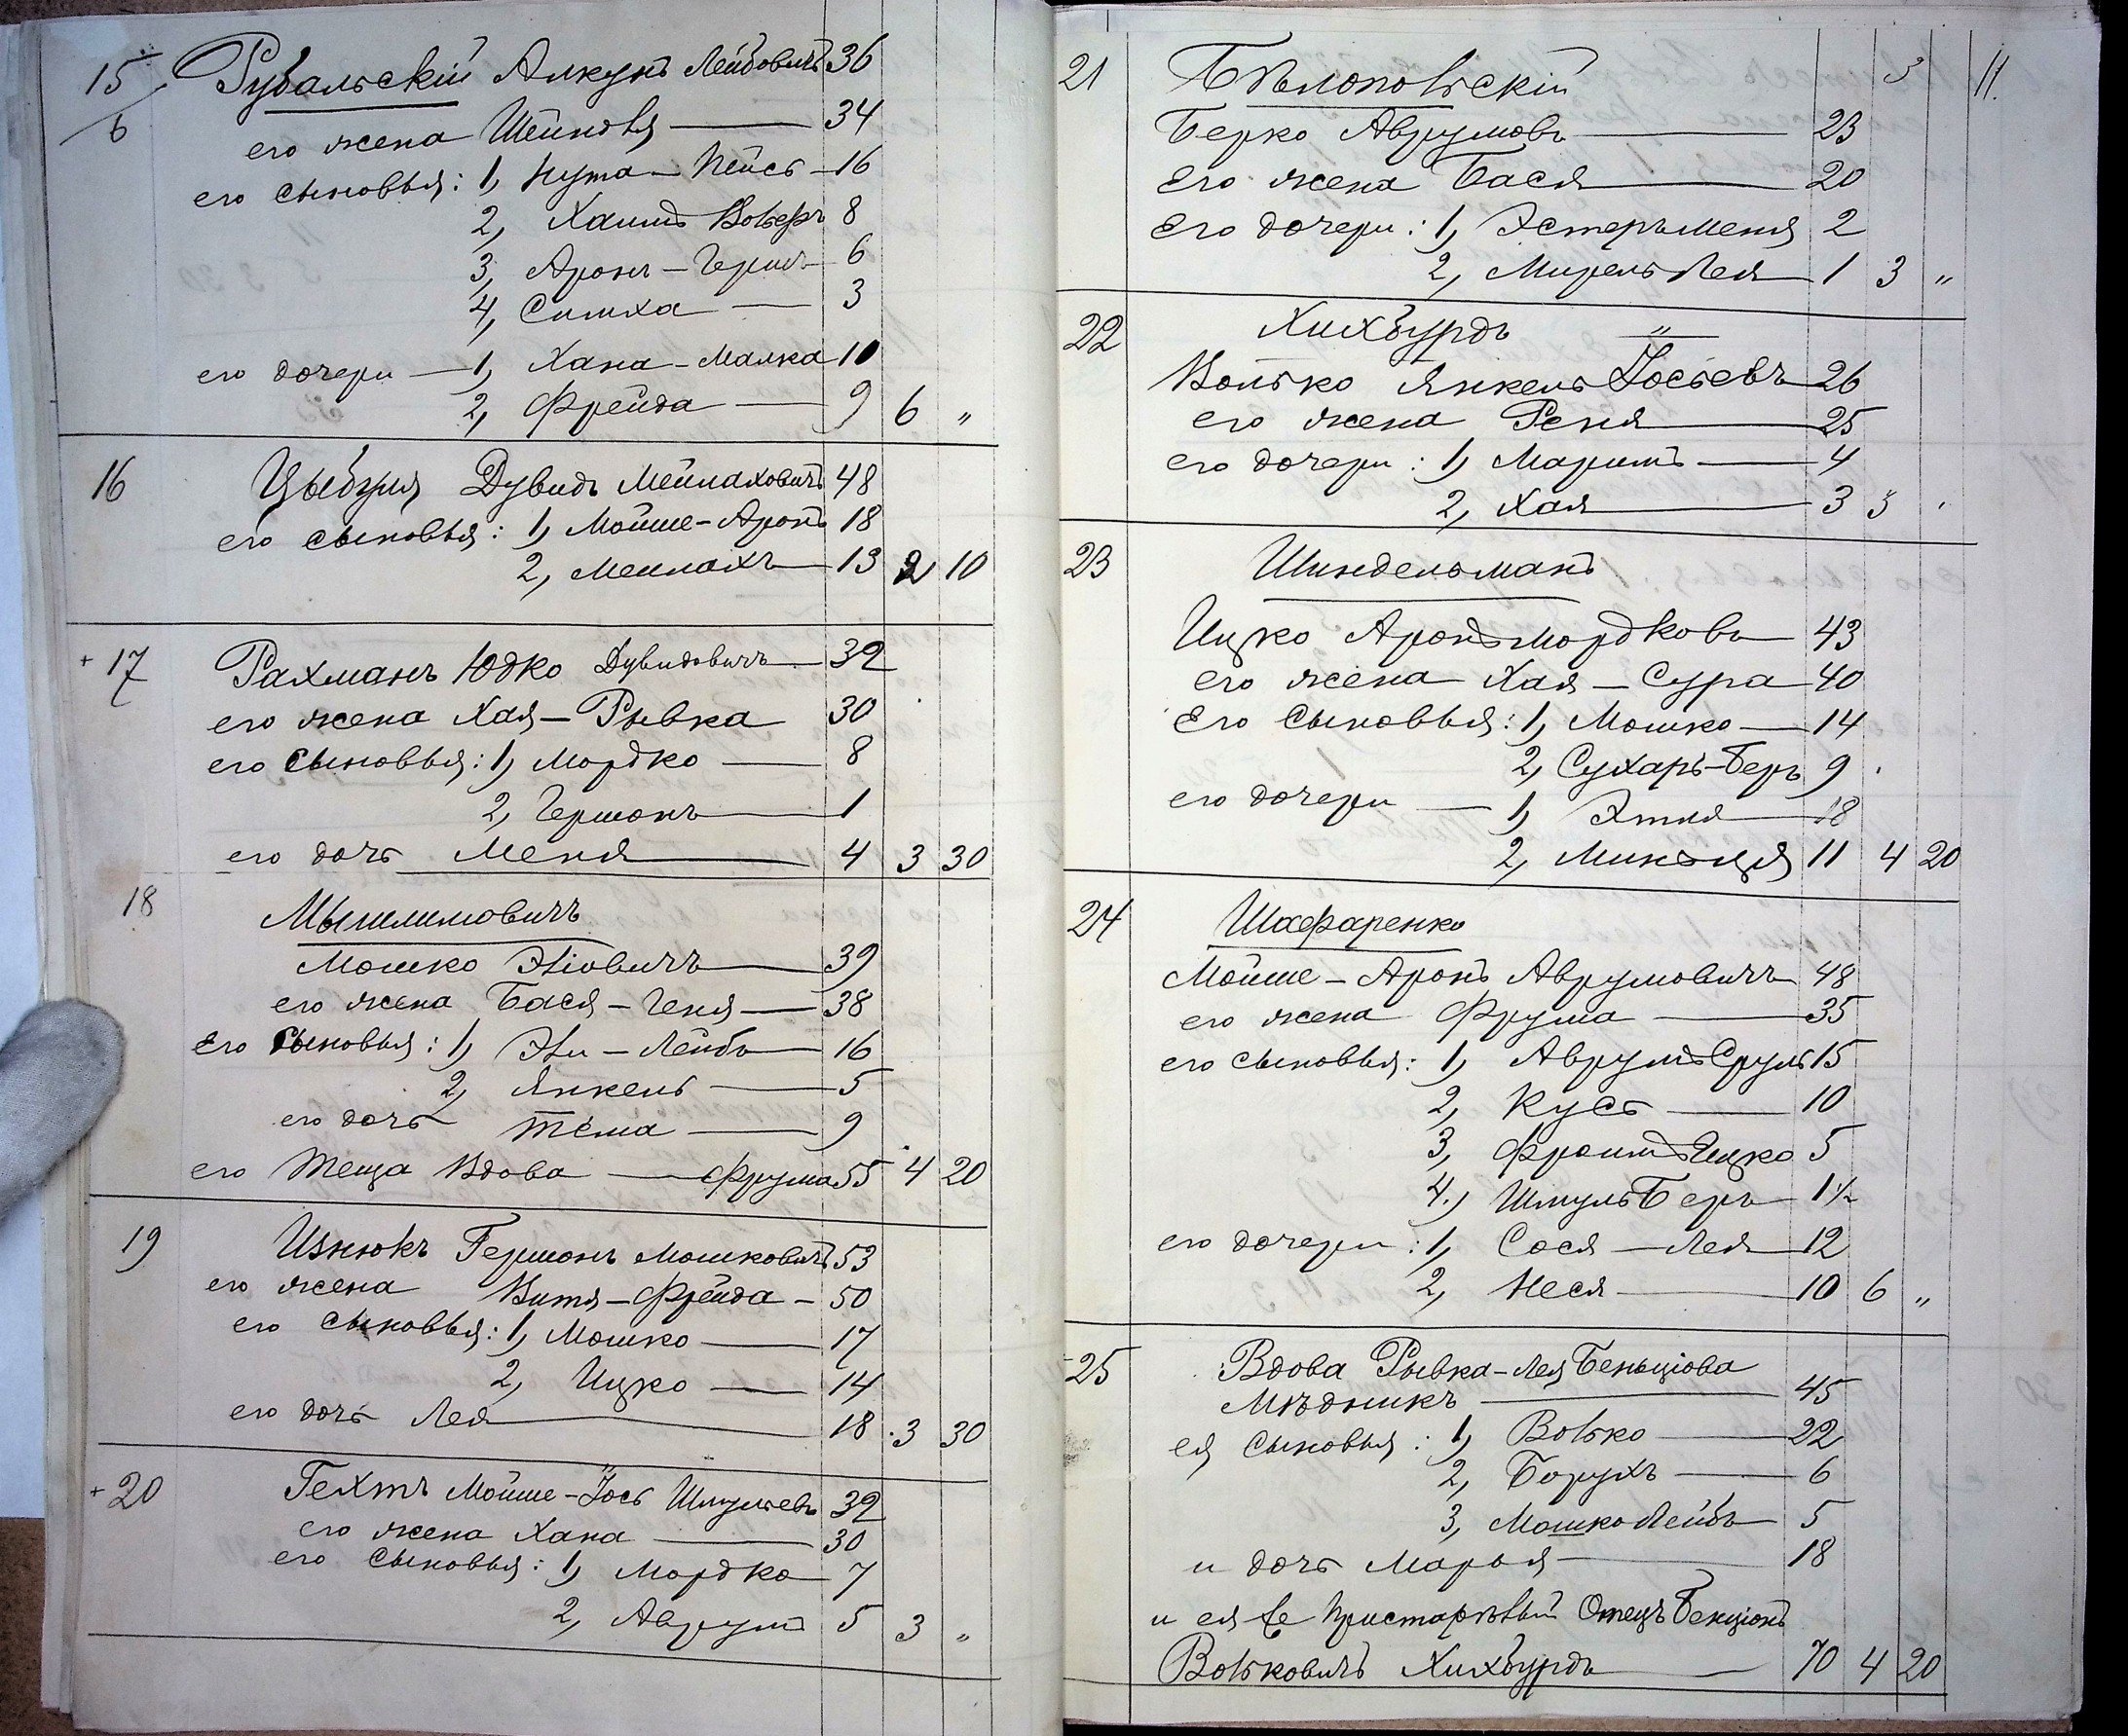 15 Рубальскій Алкунъ Лейбовичъ 36
6 его жена Шейндля — 34
его сыновья: 1, Нута — Пейсъ — 16
2, Хаимъ Вольфъ 8
3, Аронъ — Гершъ — 6
4, Симха — 3
его дочери — 1, Хана — Малка 10
2, Фрейда — 9 6 "
16 Цыбуля Дувидъ Мейлаховичъ 48
его сыновья: 1, Мойше — Аронъ 18
2, Мейлахъ — 13 2 10
+ 17 Рахманъ Юдко Дувидовичъ — 32
его жена Хая — Рывка 30
его сыновья: 1, Мордко — 8
2, Гершонъ — 1
его дочь Меня — 4 3 30
18 Мышлимовичъ
Мошко Эліовичъ — 39
его жена Бася — Геня — 38
Его сыновья: 1, Эли — Лейбъ — 16
2, Янкель — 5
его дочь Тема — 9
его теща вдова — Фрума 55 4 20
19 Изнюкъ Гершонъ Мошковичъ 53
его жена Витя — Фрейда — 50
его сыновья: 1, Мошко — 17
2, Ицко — 14
его дочь Лея — 18 3 30
+ 20 Гехтъ Мойше — Іосъ Шмулевъ 32
его жена Хана — 30
его сыновья: 1, Мордко — 7
2, Аврумъ 5 3 "
21 Бѣлопольскій 11.
Берко Аврумовъ — 23
Его жена Бася — 20
Его дочери: 1, Эстеръ Меня 2
2, Мирель Лея — 1 3 "
22 Хихбурдъ
Волько Янкель Іосьевъ — 26
его жена Реня — 25
его дочери: 1, Маримъ — 4
2, Хая — 3 3
23 Шиндельманъ
Ицко Аронъ Мордковъ — 43
его жена Хая — Сура — 40
Его сыновья: 1, Мошко — 14
2, Сухаръ — Беръ 9
его дочери — 1, Этля — 18
2, 11 4 20
24 Шафаренко
Мойше — Аронъ Аврумовичъ — 48
его жена Фрума — 35
его сыновья: 1, Аврумъ Сруль 15
2, Кусь — 10
3, Фроимъ Ицко 5
4.) Шмуль Беръ — 1½
его дочери: 1, Сося — Лея — 12
2, Неся — 10 6 "
25 Вдова Рывка — Лея Беньціова
Мѣдникъ — 45
ея сыновья: 1, Волько — 22
2, Борухъ — 6
3, Мошко Лейбъ — 5
и дочь Марья — 18
и ея Престарѣлый Отецъ Бенціонъ
Вольковичъ Хихбурдъ — 70 4 20